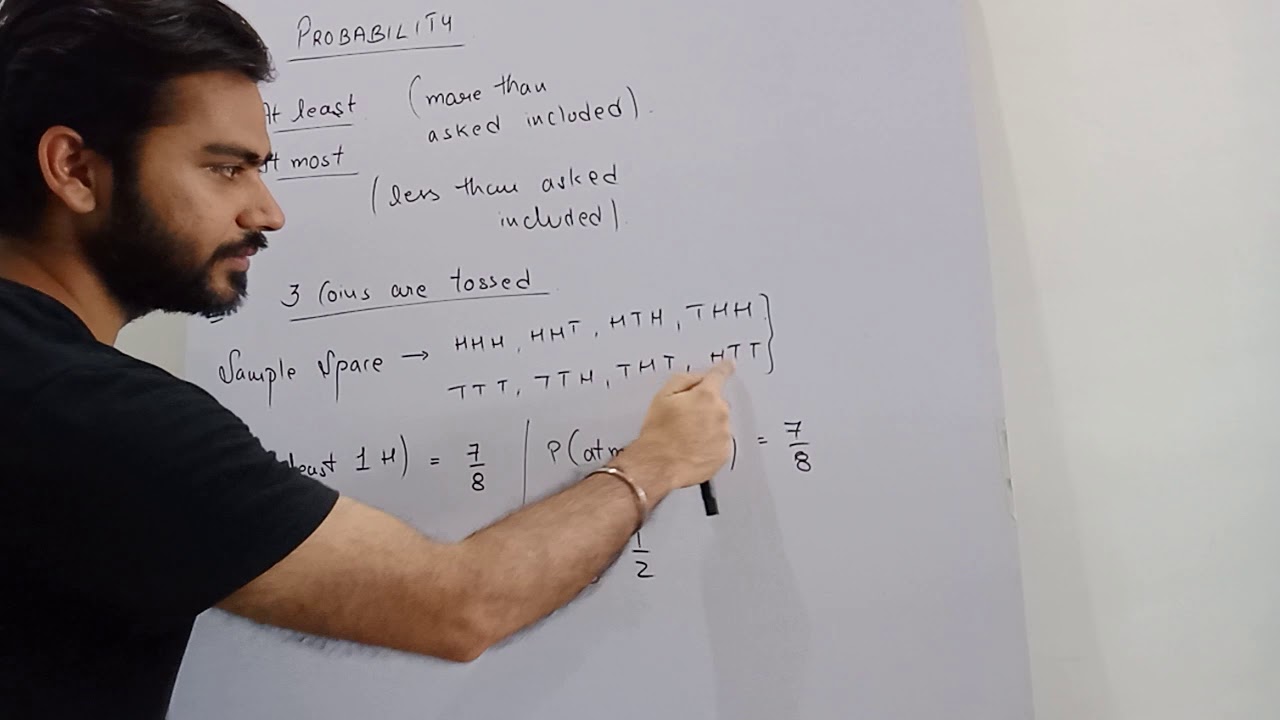 PROBABILITY
At least (more than
asked included).
At most
(less than asked
included).
3 Coins are tossed
Sample Space → HHH, HHT, HTH, THH }
TTT, TTH, THT, HTT
least 1 H) = 7/8 | P(atm ) = 7/8
1/2